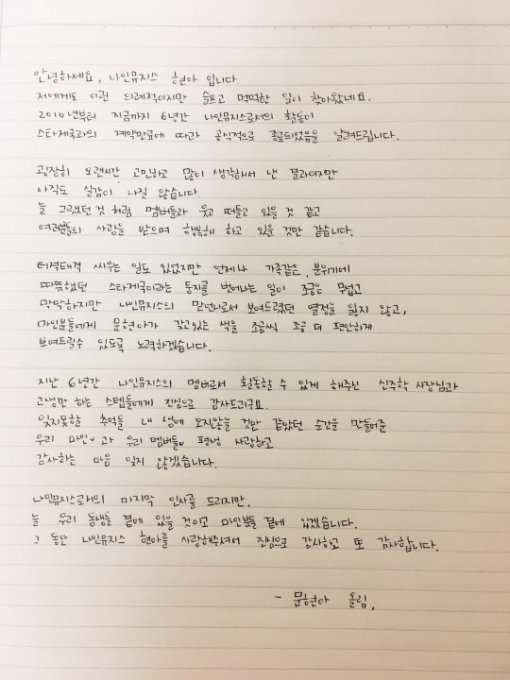 안녕하세요, 나인뮤지스 현아 입니다.
저에게도 이런 의례적이지만 슬프고 먹먹한 일이 찾아왔네요.
2010년부터 지금까지 6년간 나인뮤지스로서의 활동이
스타제국과의 계약만료에 따라 공식적으로 종료되었음을 알려드립니다.
굉장히 오랜시간 고민하고 많이 생각해서 낸 결과이지만
아직도 실감이 나질 않습니다
늘 그랬던 것 처럼 멤버들과 웃고 떠들고 있을 것 같고
여러분들의 사랑을 받으며 행복해 하고 있을 것만 같습니다.
티격태격 싸우는 일도 있었지만 언제나 가족같은 분위기에
따뜻했던 스타제국이라는 둥지를 벗어나는 일이 조금은 무섭고
막막하지만 나인뮤지스의 맏언니로서 보여드렸던 열정을 잃지 않고,
마인분들에게 문현아가 갖고있는 색을 조금씩 조금 더 편안하게
보여드릴수 있도록 노력하겠습니다.
지난 6년간 나인뮤지스의 멤버로서 활동할 수 있게 해주신 신주학 사장님과
고생만 하는 스텝들에게 진심으로 감사드리구요.
잊지못할 추억들 내 생에 오지않을 것만 같았던 순간을 만들어준
우리 마인♥과 우리 멤버들♥ 평생 사랑하고
감사하는 마음 잊지 않겠습니다.
나인뮤지스로서의 마지막 인사를 드리지만,
늘 우리 동생들 곁에 있을 것이고 마인분들 곁에 있겠습니다.
그 동안 나인뮤지스 현아를 사랑해주셔서 진심으로 감사하고 또 감사합니다.
- 문현아 올림.